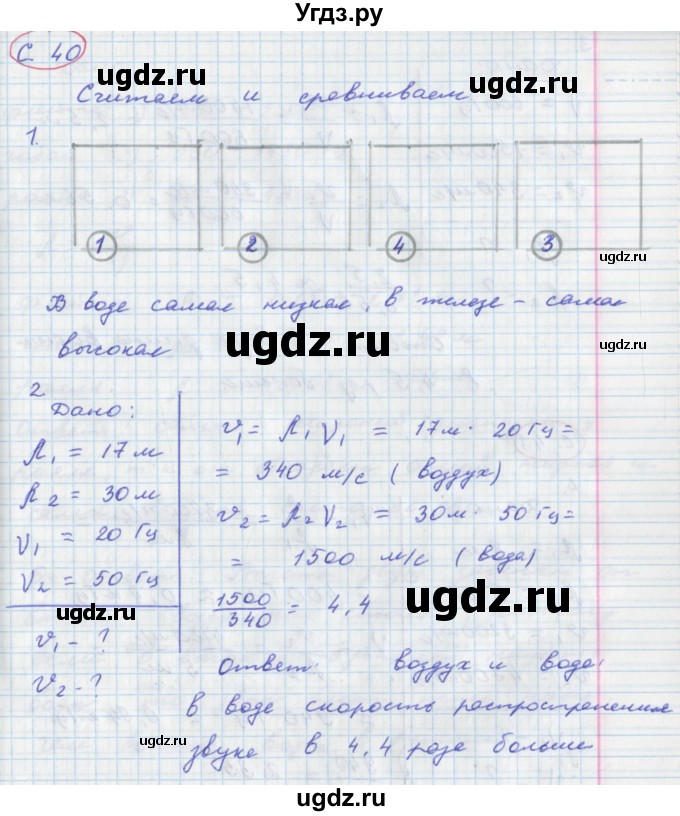 Угдз.ру
С. 40
ugdz.ru ugdz.ru
Считаем и сравниваем
1.
1 2 4 3
ugdz.ru
В воде самая низкая, в железе - самая
высокая
ugdz.ru ugdz.ru
2
Дано:
λ₁ = 17 м
λ₂ = 30 м
ν₁ = 20 Гц
ν₂ = 50 Гц
ugdz.ru
v₁ - ?
v₂ - ?
v₁ = λ₁ν₁ = 17м · 20 Гц =
= 340 м/с (воздух)
v₂ = λ₂ν₂ = 30м · 50 Гц =
= 1500 м/с (вода)
1500/340 = 4,4
ugdz.ru ugdz.ru
Ответ: воздух и вода;
в воде скорость распространения
звука в 4,4 раза больше
ugdz.ru
ugdz.ru
ugdz.ru